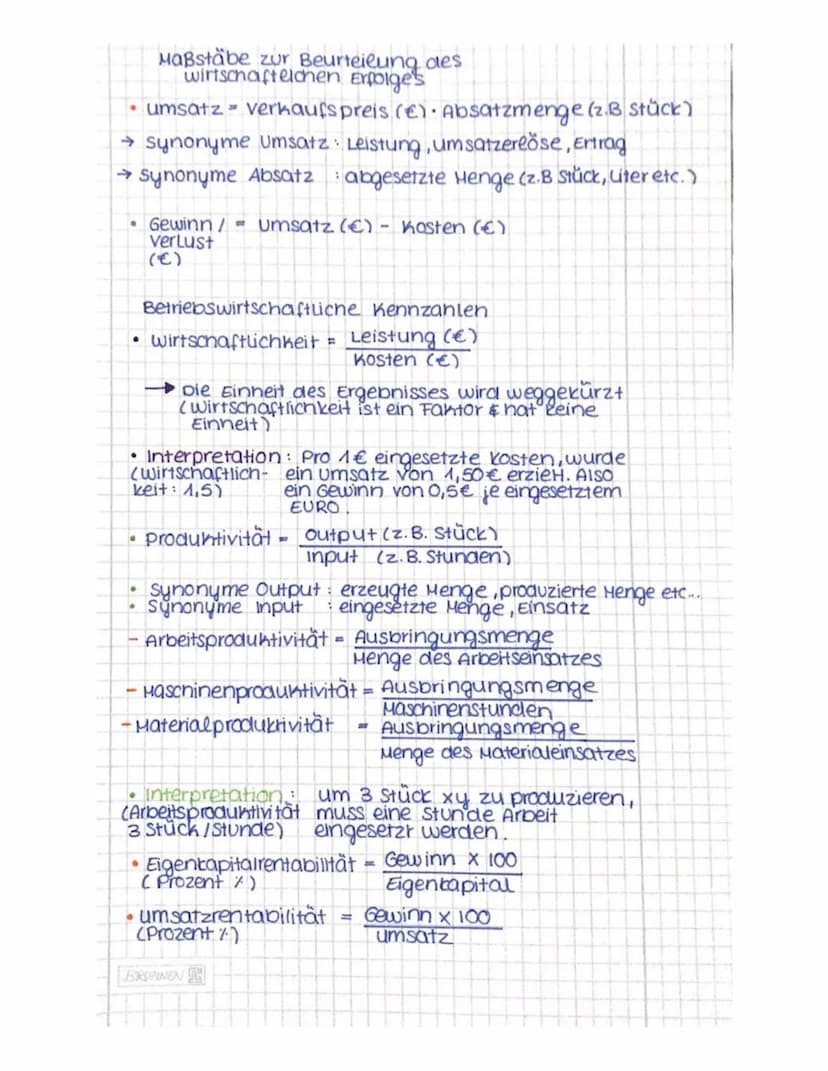 Maßstäbe zur Beurteilung des
wirtschaftelchen Erfolges
• umsatz = Verkaufspreis (€) · Absatzmenge (z.B Stück)
→ Synonyme Umsatz : Leistung, umsatzerlöse, Ertrag
→ Synonyme Absatz : abgesetzte Menge (z.B Stück, Liter etc.)
• Gewinn / = Umsatz (€) - Kosten (€)
Verlust
(€)
Betriebswirtschaftliche Kennzahlen
• Wirtschaftlichkeit = Leistung (€)
Kosten (€)
→ Die Einheit des Ergebnisses wird weggekürzt
(Wirtschaftlichkeit ist ein Faktor & hat keine
Einheit)
• Interpretation : Pro 1€ eingesetzte Kosten, wurde
(Wirtschaftlich- ein Umsatz von 1,50€ erzielt. Also
keit : 1,5) ein Gewinn von 0,5€ je eingesetztem
EURO.
• Produktivität = output (z.B. Stück)
input (z.B. Stunden)
• Synonyme Output : erzeugte Menge, produzierte Menge etc...
• Synonyme Input : eingesetzte Menge, Einsatz
- Arbeitsproduktivität = Ausbringungsmenge
Menge des Arbeitseinsatzes
- Maschinenproduktivität = Ausbringungsmenge
Maschinenstunden
- Materialproduktivität = Ausbringungsmenge
Menge des Materialeinsatzes
• Interpretation : um 3 Stück xy zu produzieren,
(Arbeitsproduktivität muss eine Stunde Arbeit
3 Stück / Stunde) eingesetzt werden.
• Eigenkapitalrentabilität = Gewinn x 100
(Prozent %) Eigenkapital
• umsatzrentabilität = Gewinn x 100
(Prozent %) umsatz
BRUNNEN